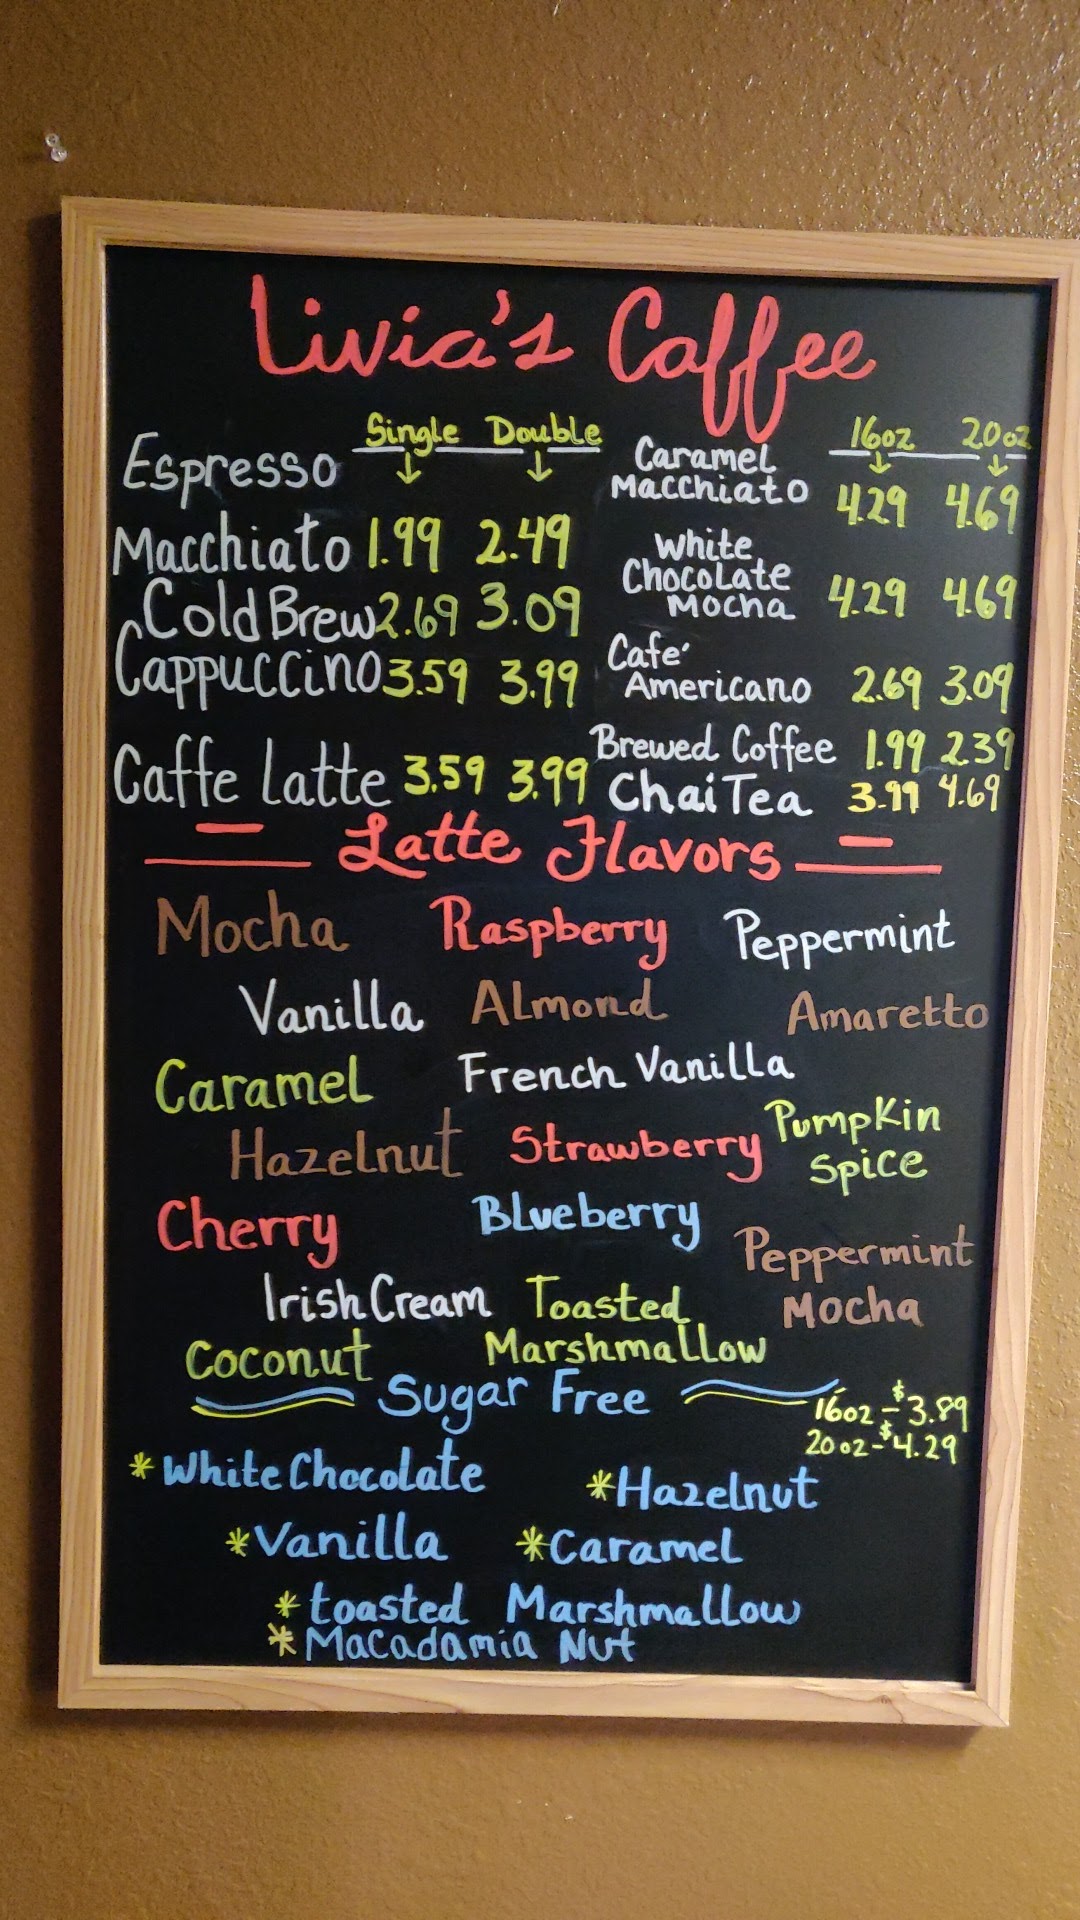 Livia's Coffee
Single Double
Espresso
Macchiato 1.99 2.49
Cold Brew 2.69 3.09
Cappuccino 3.59 3.99
Caffe Latte 3.59 3.99
16oz 20oz
Caramel
Macchiato 4.29 4.69
White
Chocolate
Mocha 4.29 4.69
Cafe'
Americano 2.69 3.09
Brewed Coffee 1.99 2.39
Chai Tea 3.99 4.69
Latte Flavors
Mocha Raspberry Peppermint
Vanilla Almond Amaretto
Caramel French Vanilla
Hazelnut Strawberry Pumpkin
Spice
Cherry Blueberry
Peppermint
Mocha
Irish Cream Toasted
Marshmallow
Coconut
Sugar Free
16oz - $3.89
20oz - $4.29
* White Chocolate * Hazelnut
* Vanilla * Caramel
* toasted Marshmallow
* Macadamia Nut